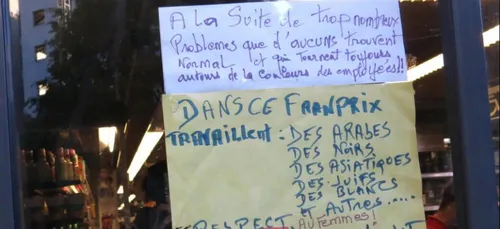 A LA Suite de trop nombreux
Problemes que d'aucuns trouvent
Normal et qui tournent toujours
autours de la couleurs des employé(es)!!
DANS CE FRANPRIX
TRAVAILLENT : DES ARABES
DES NOIRS
DES ASIATIQUES
DES JUIFS
DES BLANCS
ET AUTRES.....
RESPECT
AU FEMMES!